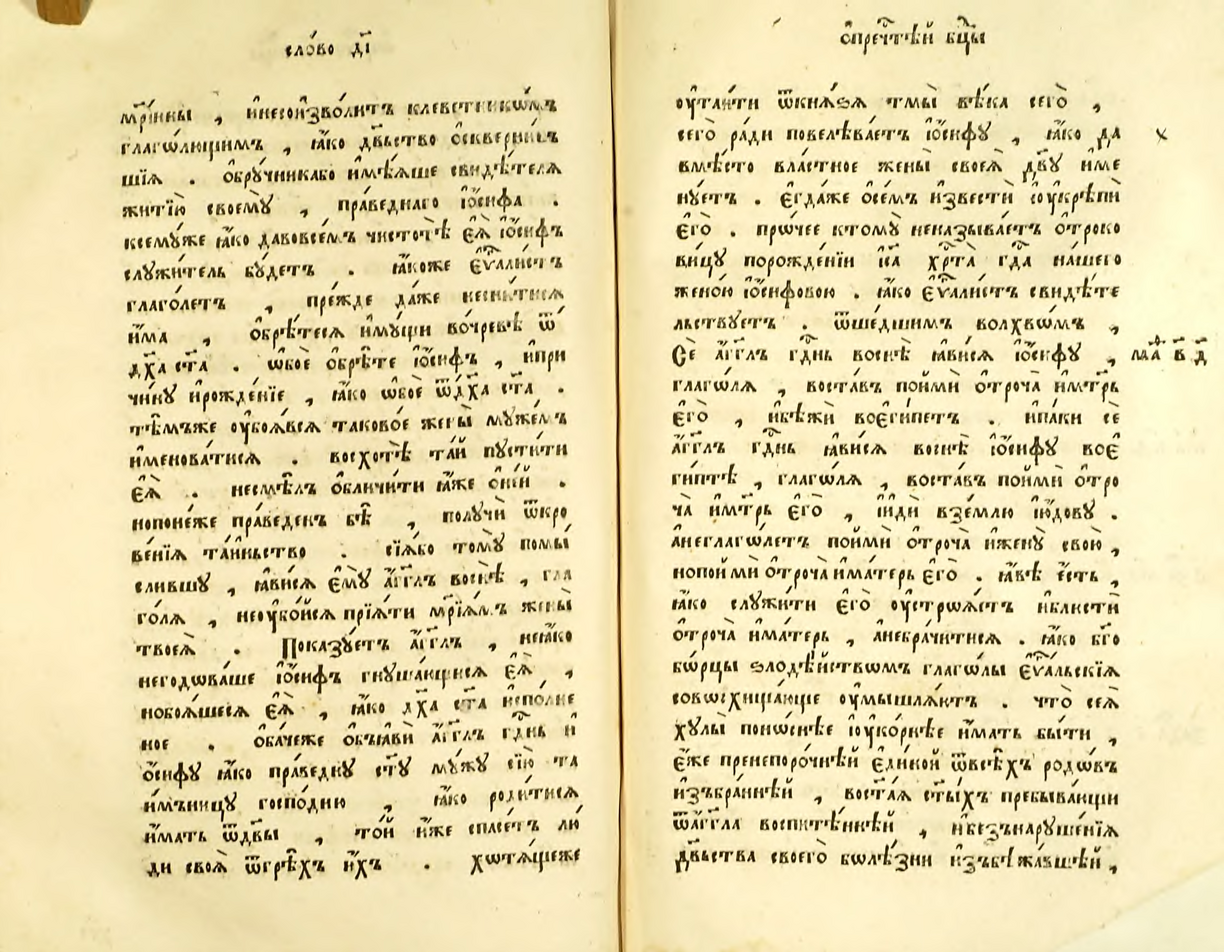 сло́во д҃і
мр҃і́ины , и҆несоизво́литъ клеветникѡ́мъ
глаго́лющимъ , ꙗ҆́ко дв҃ьство ѡ҆скверни́въ
шїѧ . ѻ҆бру́чникабо и҆мѣ́ѧше свидѣ́телѧ
житїю̀ своемꙋ̀ , пра́веднаго і҆ѡ́сифа .
ксемꙋ́же ꙗ҆́ко давовсе́мъ чистотѣ̀ є҆ѧ̀ і҆ѡ́сифъ
слꙋжи́тель бꙋ́детъ . ꙗ҆́коже є҆ѵⷢ҇али́стъ
глаго́летъ , пре́жде да́же неснитисѧ
и҆́ма , ѡ҆брѣ́тесѧ и҆мꙋ́щи во́чревѣ ѿ
дх҃а ст҃а . ѡ҆бо́е ѡ҆брѣ́те і҆ѡ́сифъ , и҆при
чи́нꙋ и҆рожде́нїе , ꙗ҆́ко ѡ҆бо́е ѿдх҃а ст҃а .
тѣ́мъже ᲂу҆боѧ́всѧ таково́е жены̀ мꙋ́жемъ
и҆менова́тисѧ . восхотѣ̀ та́й пꙋсти́ти
є҆ѧ̀ . несмѣ́лъ ѡ҆бличи́ти ꙗ҆́же ѻ҆ній .
нопоне́же пра́веденъ бѣ̀ , полꙋчѝ ѿкро
ве́нїѧ та́иньство . сїѧ̀бо томꙋ̀ помы́
слившꙋ , ꙗ҆ви́сѧ є҆мꙋ̀ а҆́гг҃лъ воснѣ̀ , гла
го́лѧ , неᲂу҆бо́йсѧ прїѧ́ти мр҃і́ѧмъ жены̀
твоеѧ̀ . Пока́зꙋетъ а҆́гг҃лъ , неꙗ҆́ко
негодѡва́ше і҆ѡ́сифъ гнꙋша́ющисѧ є҆ѧ̀ ,
нобоѧ́шесѧ є҆ѧ̀ , ꙗ҆́ко дх҃а ст҃а и҆спо́лне
ное . ѻ҆ба́чеже ѻ҆бъꙗвѝ а҆́гг҃лъ гдⷭ҇нь и҆
ѡ́сифꙋ ꙗ҆́ко пра́веднꙋ ст҃ꙋ мꙋ́жꙋ сїю̀ та
и́мъницꙋ госпо́дню , ꙗ҆́ко роди́тисѧ
и҆́мать ѿдв҃ы , то́й и҆́же спасе́тъ лю́
ди своѧ̀ ѿгрѣ̑хъ и҆́хъ . хѡтѧ́щеже
ѡ҆пречⷭ҇тѣй бцⷣы
ᲂу҆таи́ти ѿкнѧ́ѕѧ тмы̀ вѣ́ка сегѡ̀ ,
сегѡ̀ ра́ди повелѣва́етъ і҆ѡ́сифꙋ , ꙗ҆́ко да х
вмѣ́сто вла́стное жены̀ своеѧ̀ дв҃ꙋ и҆ме
нꙋ́етъ . є҆гда́же ѻ҆се́мъ и҆звестѝ и҆ᲂу҆крѣпѝ
є҆го̀ . про́чее ктомꙋ̀ неназыва́етъ ѻ҆троко
ви́цꙋ порожде́нїи і҆с҃а хрⷭ҇та̀ гдⷭ҇а на́шего
жено́ю і҆ѡ́сифовою . ꙗ҆́ко є҆ѵⷢ҇али́стъ свидѣ́те
льствꙋетъ . ѿше́дшимъ волхвѡ́мъ ,
Сѐ а҆́гг҃лъ гдⷭ҇нь воснѣ̀ ꙗ҆ви́сѧ і҆ѡ́сифꙋ , маⷴ҇ в҃ д҃
глаго́лѧ , воста́въ поймѝ ѻ҆троча̀ и҆мт҃рь
є҆гѡ̀ , и҆бѣжѝ воє҆ги́петъ . и҆па́ки сѐ
а҆́гг҃лъ гдⷭ҇нь ꙗ҆ви́сѧ воснѣ̀ і҆ѡ́сифꙋ воє҆
ги́птѣ , глаго́лѧ , воста́въ поймѝ ѻ҆тро
ча̀ и҆мт҃рь є҆гѡ̀ , и҆идѝ взе́млю і҆ю́довꙋ .
а҆неглаго́летъ поймѝ ѻ҆троча̀ и҆женꙋ̀ свою̀ ,
нопоймѝ ѻ҆троча̀ и҆ма́терь є҆гѡ̀ . ꙗ҆́вѣ є҆́сть ,
ꙗ҆́ко слꙋжи́ти є҆го̀ ᲂу҆строѧ́етъ и҆блюстѝ
ѻ҆троча̀ и҆ма́терь , а҆небра́читисѧ . ꙗ҆́ко бг҃о
бо́рцы ѕлодѣ́йствомъ глаго́лы є҆ѵⷢ҇альскїѧ
совосхища́юще ᲂу҆мышлѧ́ютъ . что̀ сеѧ̀
хꙋлы̀ поно́снѣе и҆ᲂу҆ко́рнѣе и҆́мать бы́ти ,
є҆́же пренепоро́чнѣй є҆ди́ной ѿвсѣ́хъ родѡ́въ
и҆збра́ннѣй , востаѧ̀ ст҃ы́хъ пребыва́ющи
ѿа҆́гг҃ла воспитѣ́ннѣй , и҆безънарꙋше́нїѧ
дв҃ьства своегѡ̀ болѣ́зни и҆збѣжа́вшѣй ,